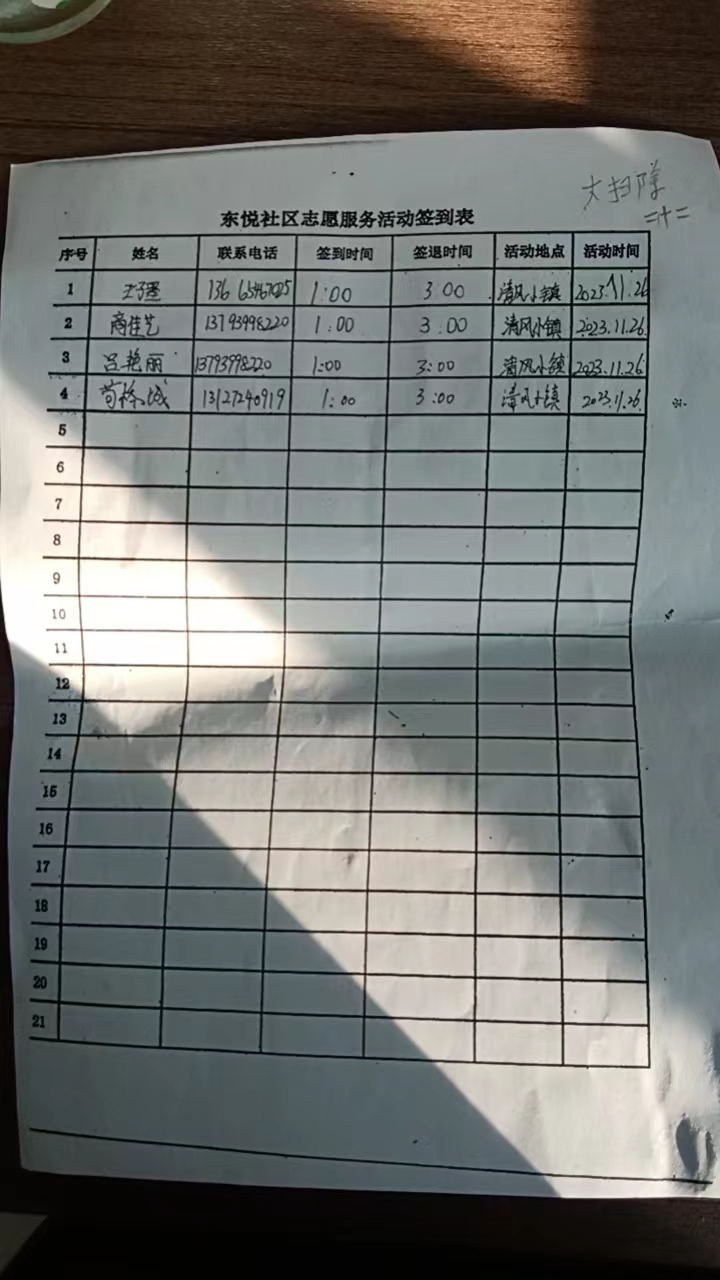 大扫除
二十二
东悦社区志愿服务活动签到表
序号 姓名 联系电话 签到时间 签退时间 活动地点 活动时间
1 1:00 3:00 清风小镇 2023.11.26
2 商佳艺 13793998220 1:00 3:00 清风小镇 2023.11.26
3 吕艳丽 13793998220 1:00 3:00 清风小镇 2023.11.26
4 13127240919 1:00 3:00 清风小镇 2023.11.26
5
6
7
8
9
10
11
12
13
14
15
16
17
18
19
20
21